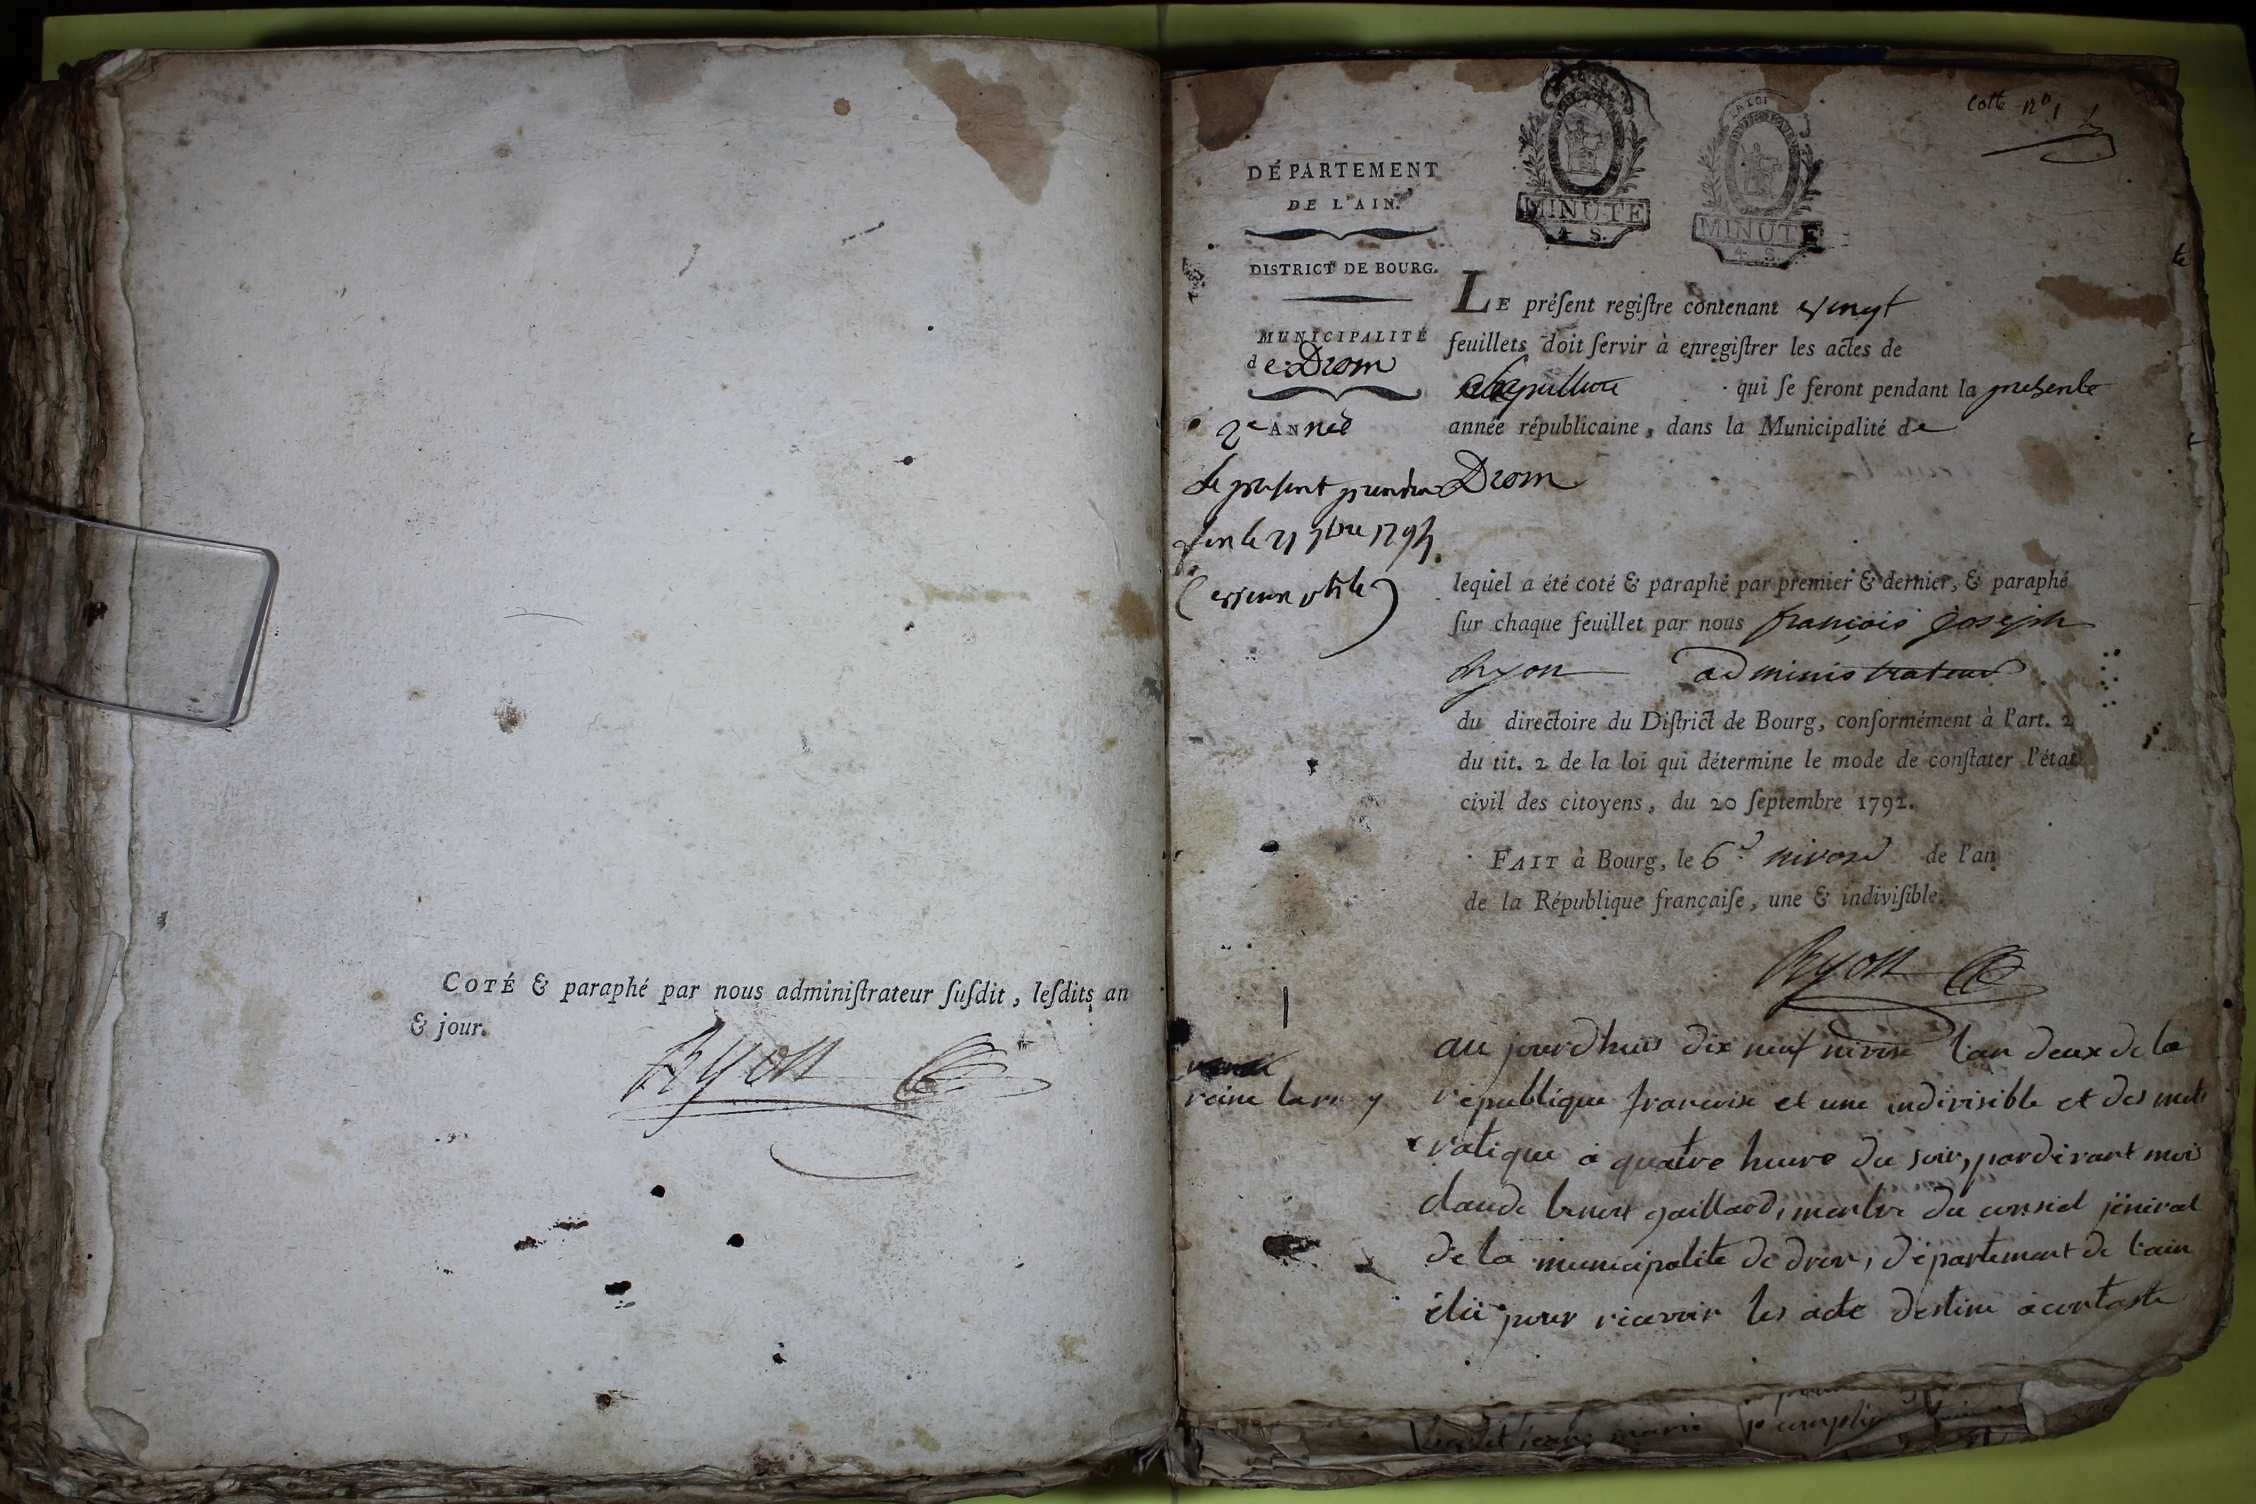 COTÉ & paraphé par nous adminiſtrateur ſuſdit, leſdits an
& jour.
Ryon
Cotte nº 1
LA LOI
MINUTE
4. S.
MINUTE
4. S.
DÉPARTEMENT
DE L'AIN.
DISTRICT DE BOURG.
MUNICIPALITÉ
de Drom
2e ANnée
le présent prendra
fin le 21 7bre 1794
LE préſent regiſtre contenant vingt
feuillets doit ſervir à enregiſtrer les actes de
sépulture qui ſe feront pendant la presente
année républicaine, dans la Municipalité de
Drom
lequel a été coté & paraphé par premier & dernier, & paraphé
ſur chaque feuillet par nous françois joseph
Ryon administrateur
du directoire du Diſtrict de Bourg, conformément à l'art. 2
du tit. 2 de la loi qui détermine le mode de conſtater l'état
civil des citoyens, du 20 ſeptembre 1792.
FAIT à Bourg, le 6e nivose de l'an
de la République françaiſe, une & indiviſible.
Ryon
1
reine
au jourdhuis dix neuf nivose l'an deux de la
republique francoise et une indivisible et des mot
cratique a quatre heure du soir, pardevant mois
claude benoit gaillard, menbre du consiel jéneral
de la municipalite de drom, département de l'ain
élü pour recevoir les acte destine a contaste